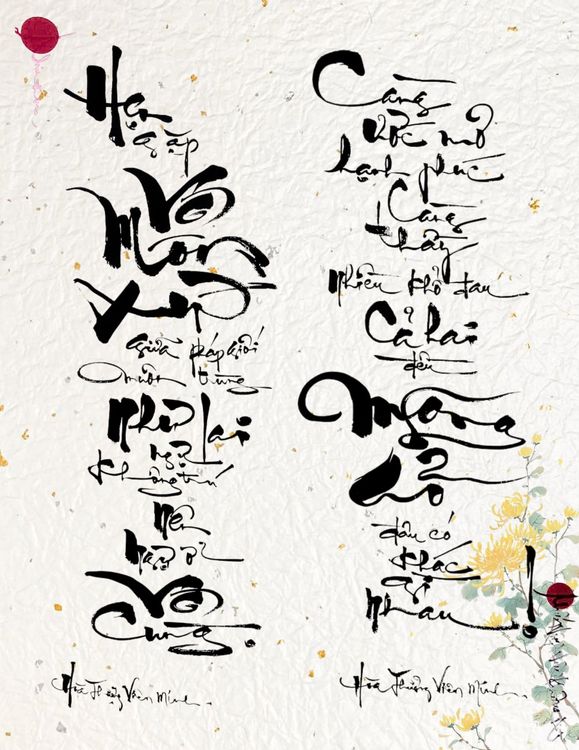 Hẹn
gặp
Vô
Môn
Xứ
giữa pháp giới
muôn trùng
Như Lai
ngự
không trú
nên
Vô
Cùng.
Hòa Thượng Viên Minh
Càng
ước mơ
hạnh phúc
Càng
thấy
nhiều khổ đau
Cả hai
đều
Mộng
ảo
đâu có
khác
gì
nhau!
Hòa Thượng Viên Minh